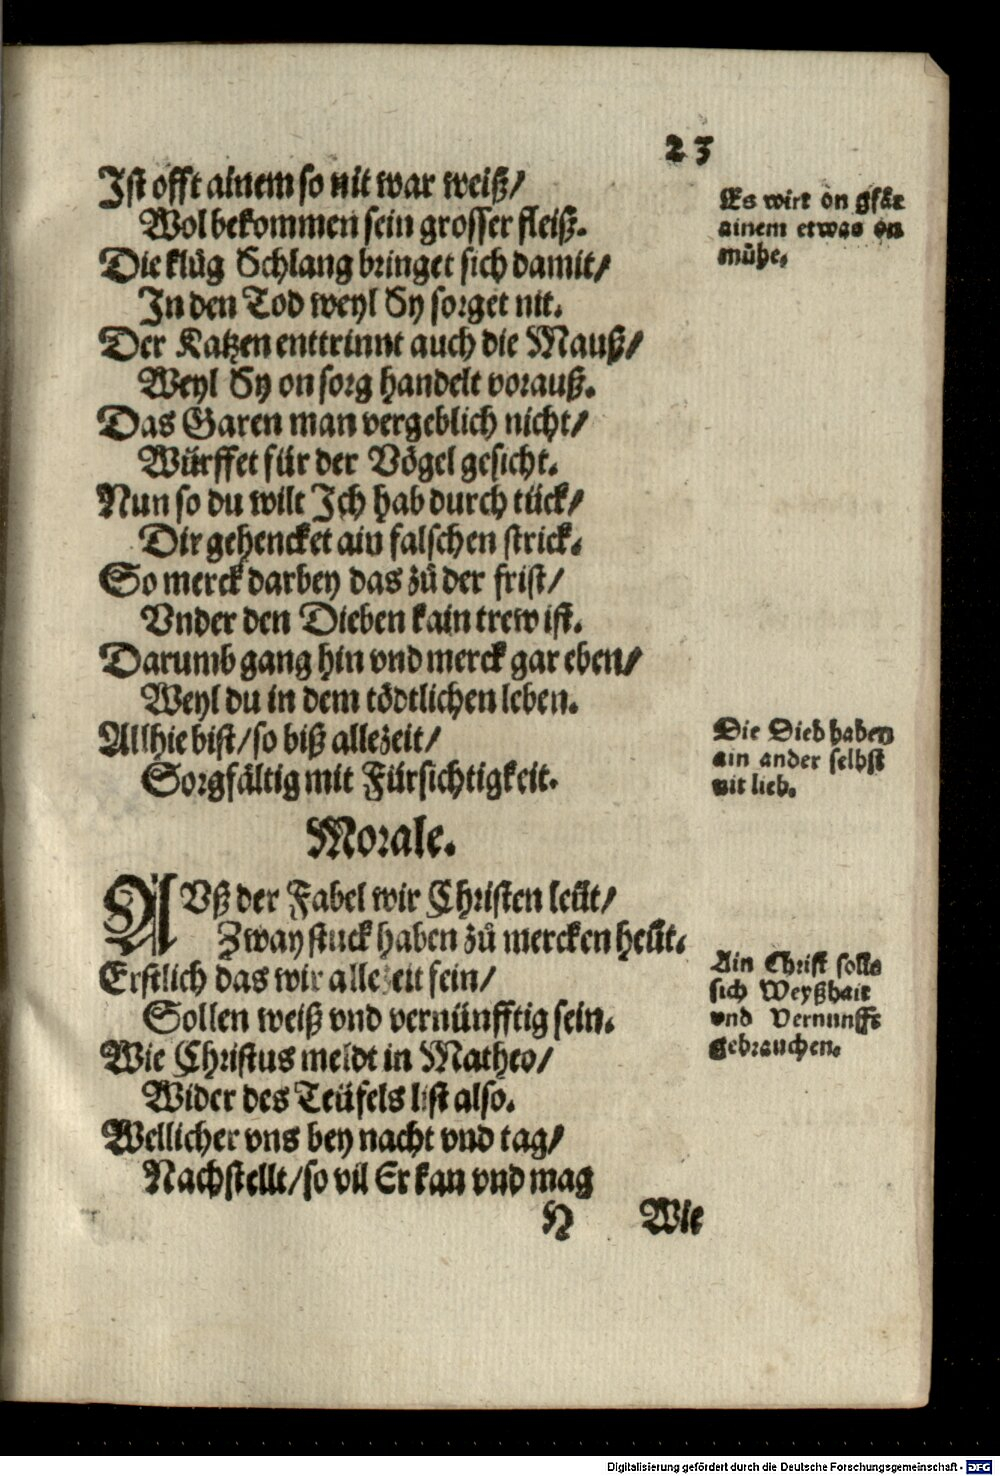 23
Ist offt ainem so nit war weiß/
Wol bekommen sein grosser fleiß.
Die klůg Schlang bringet sich damit/
In den Tod weyl Sy sorget nit.
Der Katzen enttrinnt auch die Mauß/
Weyl Sy on sorg handelt vorauß.
Das Garen man vergeblich nicht/
Würffet für der Vögel gesicht.
Nun so du wilt Ich hab durch tück/
Dir gehencket ain falschen strick.
So merck darbey das zů der frist/
Vnder den Dieben kain trew ist.
Darumb gang hin vnd merck gar eben/
Weyl du in dem tödtlichen leben.
Allhie bist/so biß allezeit/
Sorgfältig mit Fürsichtigkeit.
Es wirt on gfär
ainem etwas on
mühe.
Die Dieb haben
ain ander selbst
nit lieb.
Morale.
AVß der Fabel wir Christen leüt/
Zway stuck haben zů mercken heüt.
Erstlich das wir allezeit sein/
Sollen weiß vnd vernünfftig sein.
Wie Christus meldt in Matheo/
Wider des Teüfels list also.
Wellicher vns bey nacht vnd tag/
Nachstellt/so vil Er kan vnd mag
Ain Christ solle
sich Weyßhait
vnd Vernunfft
gebrauchen.
H Wie
Digitalisierung gefördert durch die Deutsche Forschungsgemeinschaft - DFG